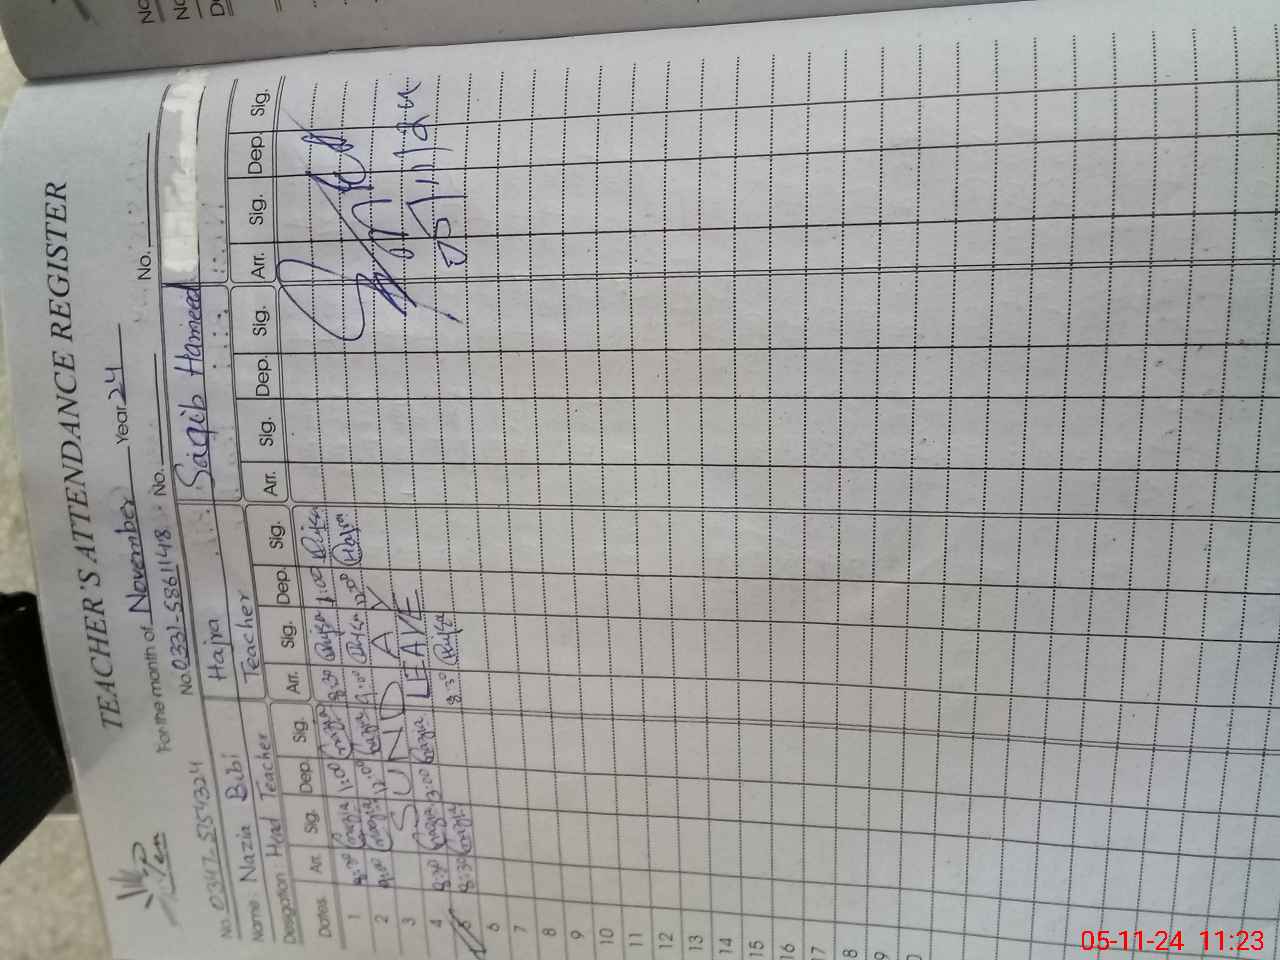 TEACHER'S ATTENDANCE REGISTER
For the month of November Year 24
No. 0347-5154324 No. 0331-5861148 No. No.
Name: Nazia Bibi Hajra Saqib Hameed
Desigation: Head Teacher Teacher
Dates Arr. Sig. Dep. Sig. Arr. Sig. Dep. Sig. Arr. Sig. Dep. Sig. Arr. Sig. Dep. Sig.
1 8:30 Nazia 1:00 Nazia 8:30 1:00
2 9:00 Nazia 12:00 Nazia 9:00 12:00 Hajra
3 SUNDAY
4 8:30 Nazia 3:00 Nazia LEAVE
5 8:30 Nazia 8:30
05/11/24
6
7
8
9
10
11
12
13
14
15
16
17
8
9
0
05-11-24 11:23